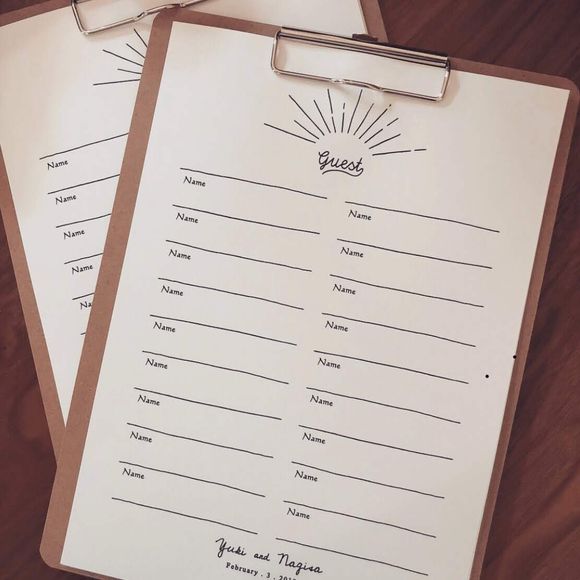 Name
Name
Name
Name
Guest
Name Name
Name Name
Name Name
Name Name
Name Name
Name Name
Name Name
Name Name
Name Name
Yuki and Nagisa
February . 3 .